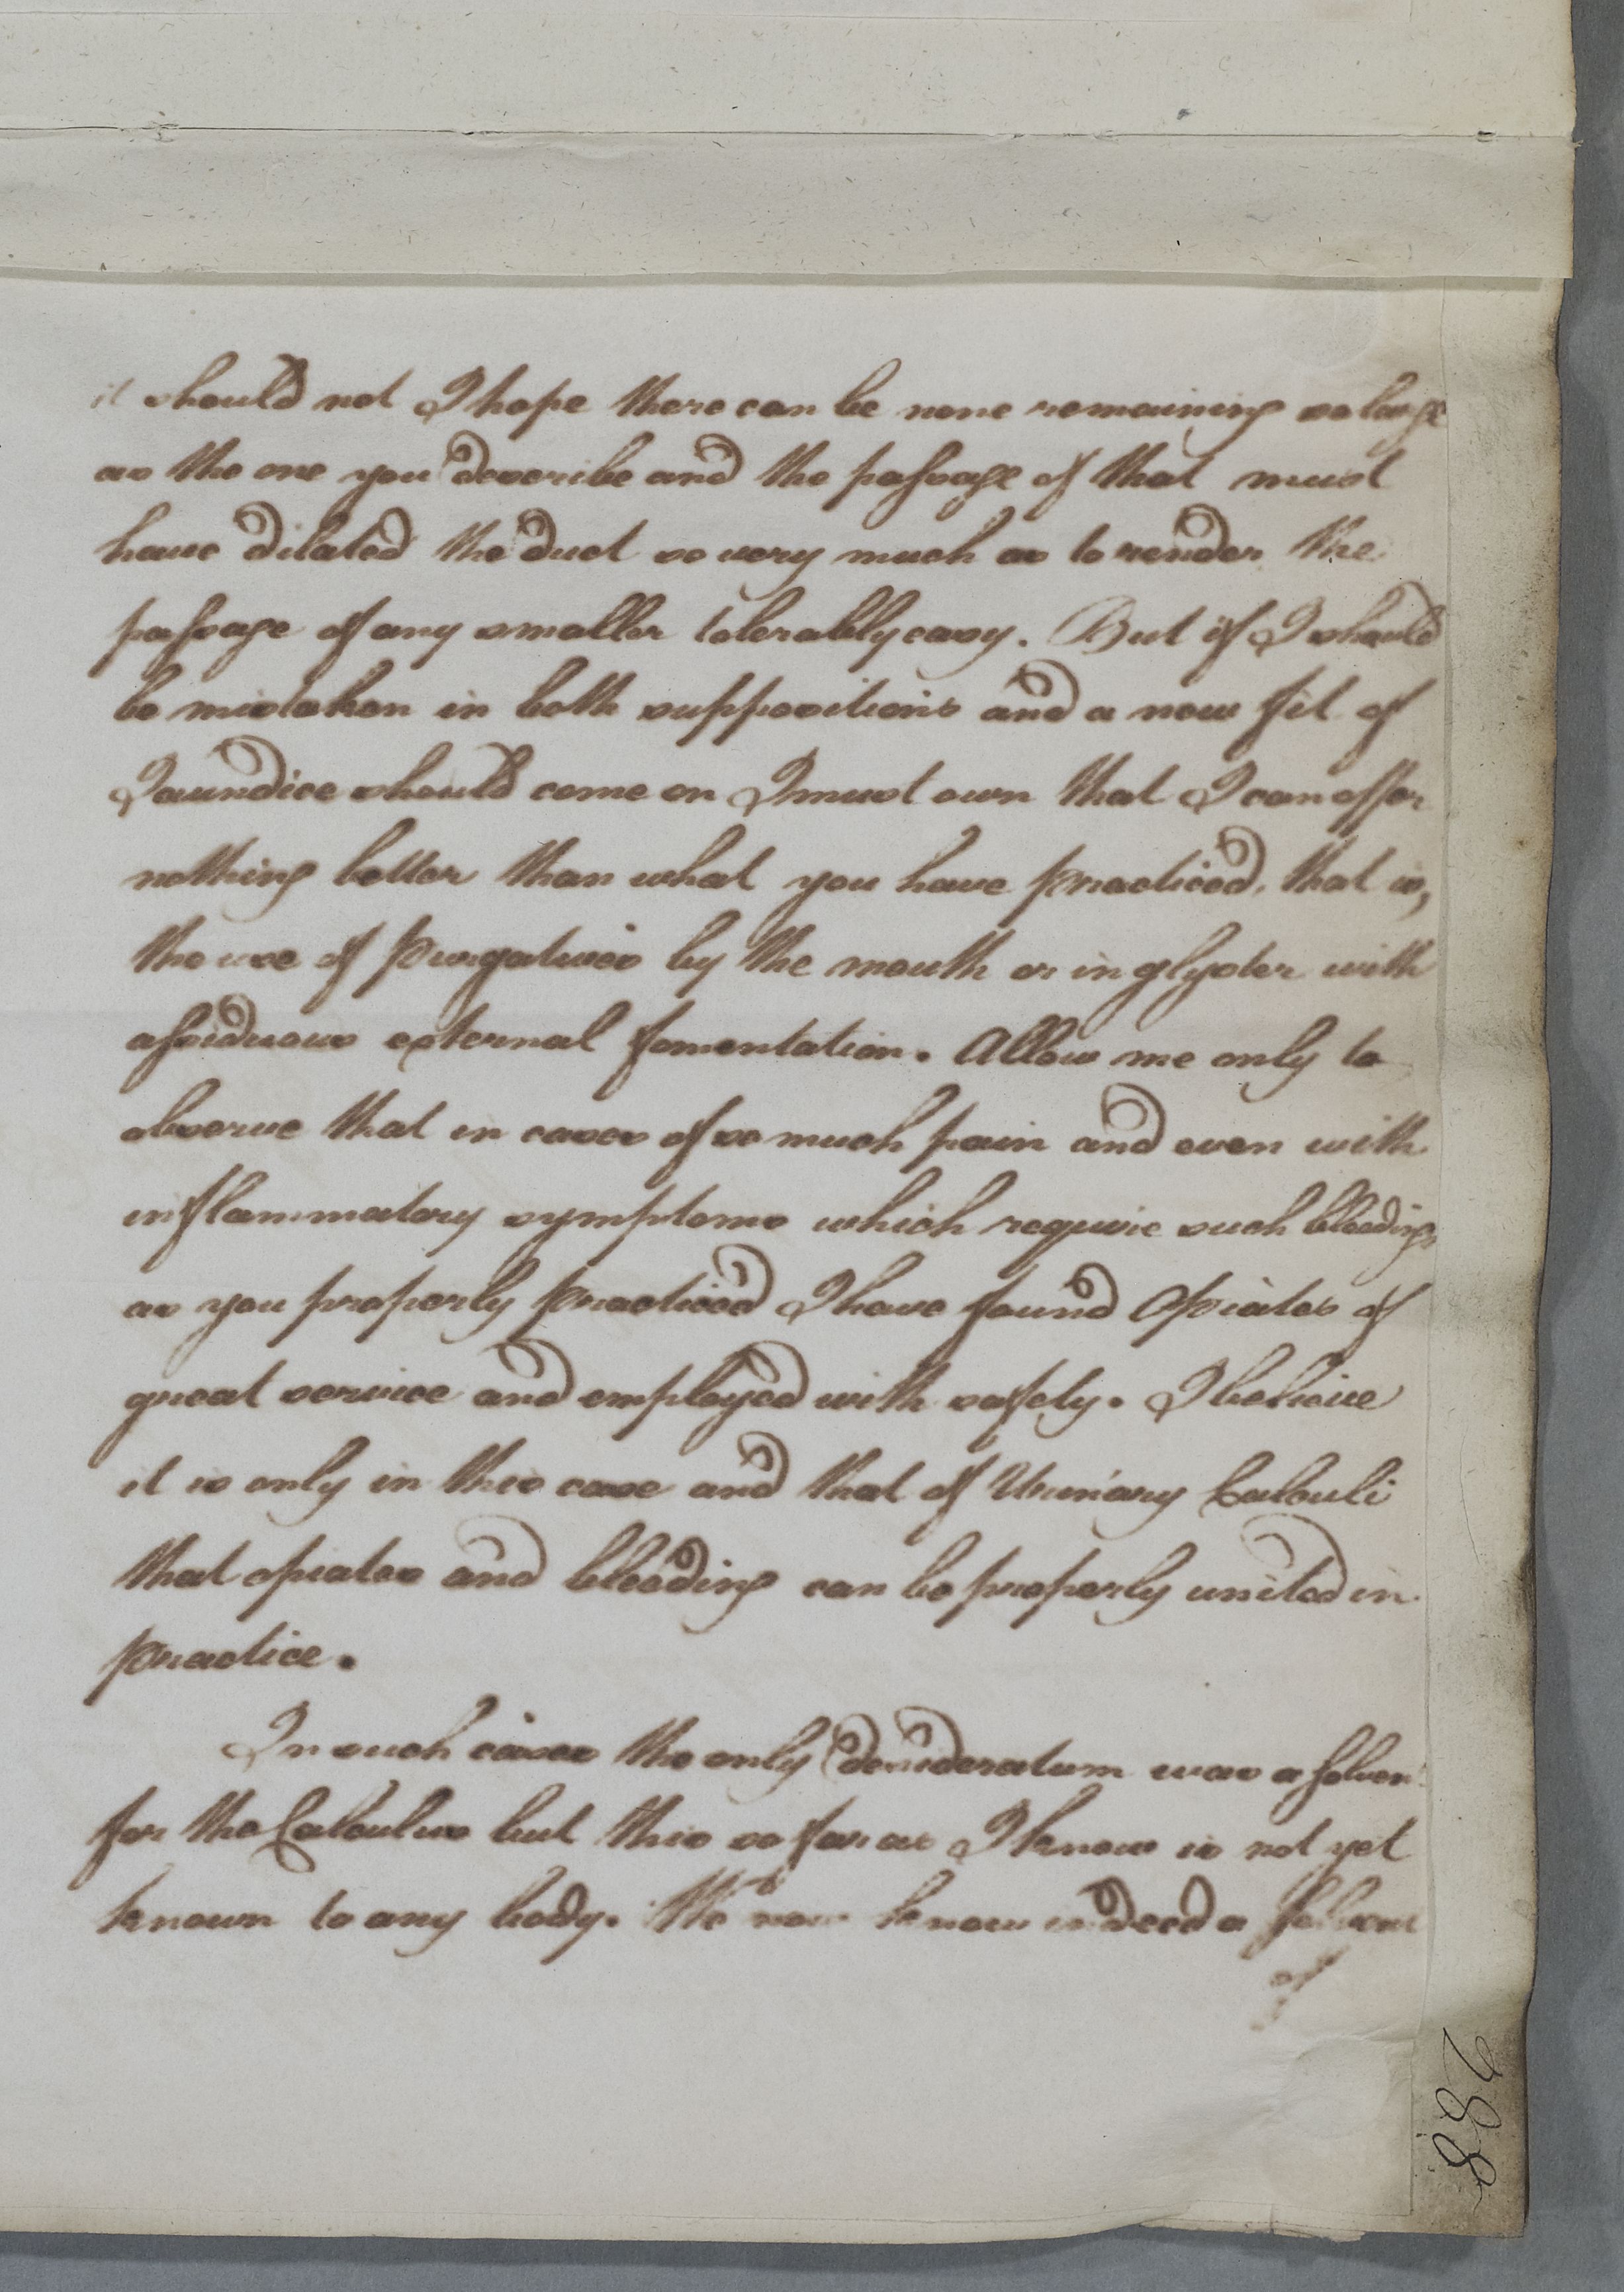 it should not I hope there can be none remaining so large
as the one you describe and the passage of that must
have dilated the duct so very much as to render the
passage of any smaller tolerably easy. But if I should
be mistaken in both suppositions and a new fit of
Jaundice should come on I must own that I can offer
nothing better than what you have practiced, that is,
the use of purgatives by the mouth or in glyster with
assiduous external fomentation. Allow me only to
observe that in cases of so much pain and even with
inflammatory symptoms which require such bleedings
as you properly practiced I have found Opiates of
great service and employed with safety. I believe
it is only in this case and that of Urinary Calculi
that opiates and bleeding can be properly united in
practice.
In such cases the only desideratum was a solven
for the Calculus but this so far as I know is not yet
known to any body. We now know indeed a solvent
of
288